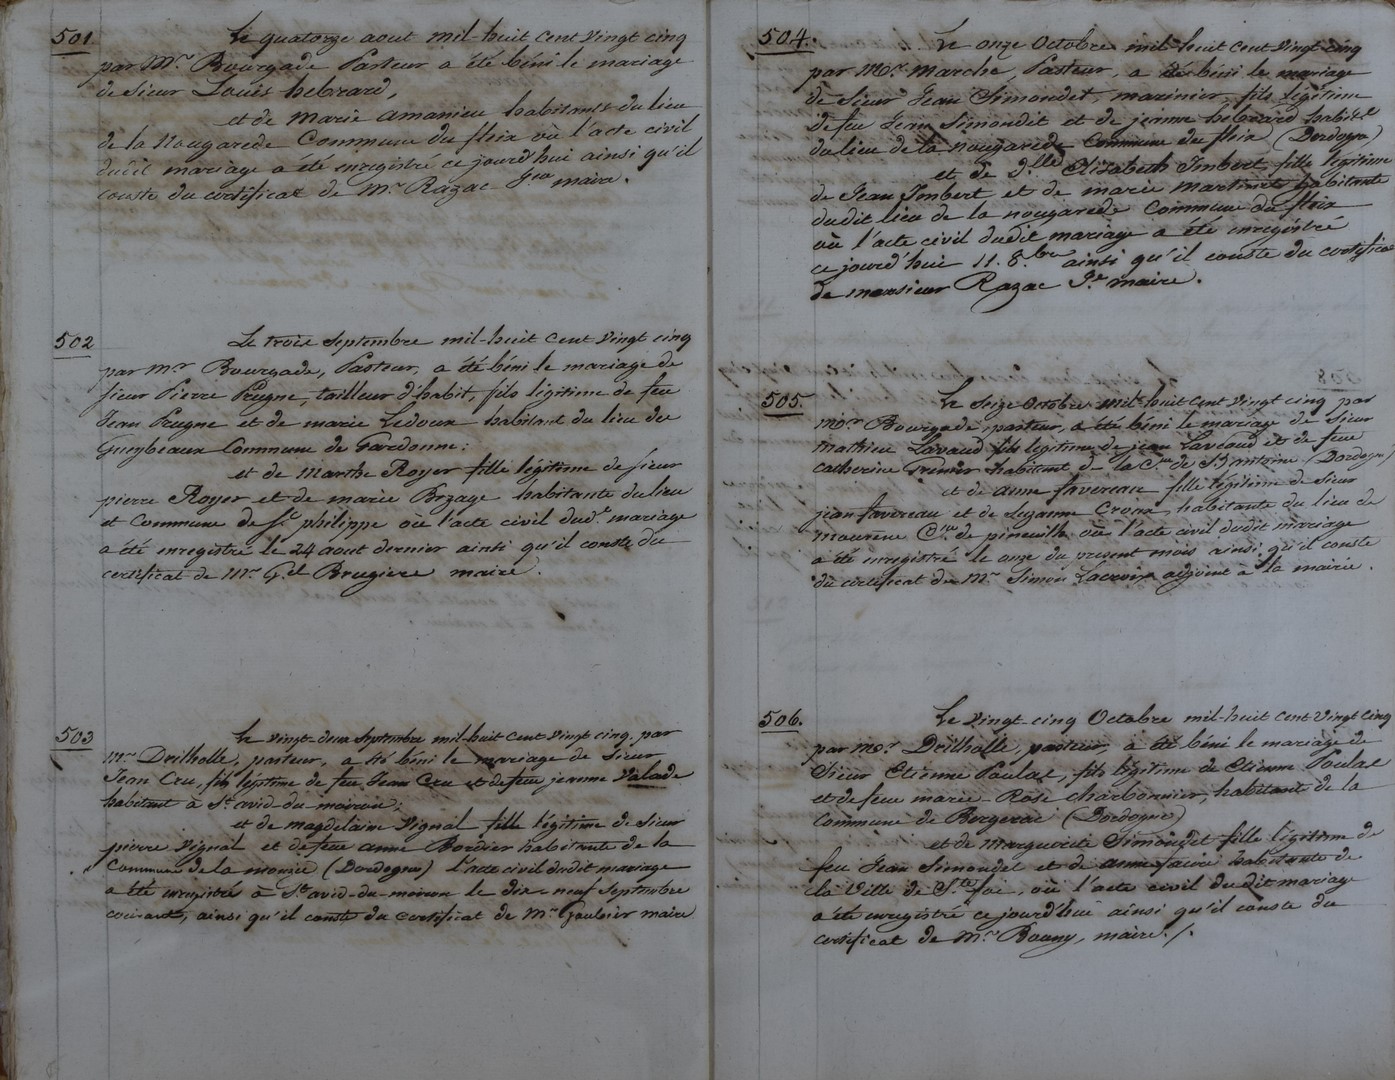 501
Le quatorze aout mil-huit cent vingt cinq
par Mr. Bourgade Pasteur a été béni le mariage
de Sieur Louis hebrard,
et de Marie amanieu habitants du lieu
de la Nougarede Commune du fleix où l'acte civil
dudit mariage a été enregistré ce jourd'hui ainsi qu'il
conste du certificat de Mr. Razac Jne maire.
502
Le trois Septembre mil-huit cent vingt cinq
par mr. Bourgade, Pasteur, a été béni le mariage de
sieur Pierre Prugne, tailleur d'habit, fils légitime de feu
Jean Prugne et de marie Ledoux habitant du lieu de
Commune de Gardonne:
et de Marthe Royer fille légitime de sieur
pierre Royer et de marie habitante du lieu
et Commune de St. philippe où l'acte civil dudt. mariage
a été enregistré le 24 aout dernier ainsi qu'il conste du
certificat de Mr. Gel Brugiere maire.
503
Le vingt-deux Septembre mil-huit cent vingt cinq, par
mr. Deilholle, pasteur, a été béni le mariage de Sieur
Jean Cru, fils légitime de feu Jean Cru et de feue jeanne Valade
habitant à St. avid-du-moiron;
et de magdelaine Vignal fille légitime de Sieur
pierre Vignal et de feue anne Bordier habitante de la
Commune de la monzie (Dordogne) l'acte civil dudit mariage
a été enregistré à St. avid-du-moiron le dix-neuf Septembre
courant, ainsi qu'il conste du certificat de Mr. Gaulnier maire
504.
Le onze Octobre mil-huit cent vingt cinq
par Mr. Marche, Pasteur, a été béni le mariage
de Sieur Jean Simondet, marinier, fils légitime
de feu Jean Simondet et de jeanne hebrard habitt
du lieu de la nougarede Commune du fleix (Dordogne)
et de dlle Elizabeth Imbert, fille légitime
de Jean Imbert et de marie martinet habitante
dudit lieu de la nougarede Commune du fleix
où l'acte civil dudit mariage a été enregistré
ce jourd'hui 11. 8.bre ainsi qu'il conste du certificat
de monsieur Razac Je. maire.
505.
Le Seize Octobre mil-huit cent vingt cinq par
mr. Bourgade, pasteur, a été béni le mariage de Sieur
mathieu Lavaud fils légitime de jean Lavaud et de feue
catherine Grenier habitant de la Cne de St antoine (Dordogne)
et de anne favereau fille légitime de Sieur
jean favereau et de Suzanne habitante du lieu de
mourene Cne. de pineuilh, où l'acte civil dudit mariage
a été enregistré le onze du present mois ainsi qu'il conste
du certificat de Mr. Simon Lacroix adjoint à la mairie.
506.
Le vingt-cinq Octobre mil-huit cent vingt cinq
par mr. Deilholle, pasteur, a été béni le mariage de
Sieur Etienne Paulat, fils légitime de Etienne Paulat
et de feue marie-Rose charbonnier, habitant de la
Commune de Bergerac (Dordogne)
et de Marguerite Simondet fille légitime de
feu Jean Simondet et de anne faure habitante de
la Ville de Ste. foi, où l'acte civil dudit mariage
a été enregistré ce jourd'hui ainsi qu'il conste du
certificat de Mr. Bouny, maire./.